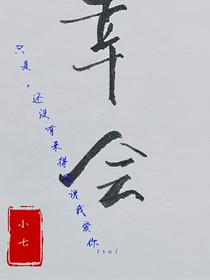 幸会
只是，还没有来得说我爱你
小七